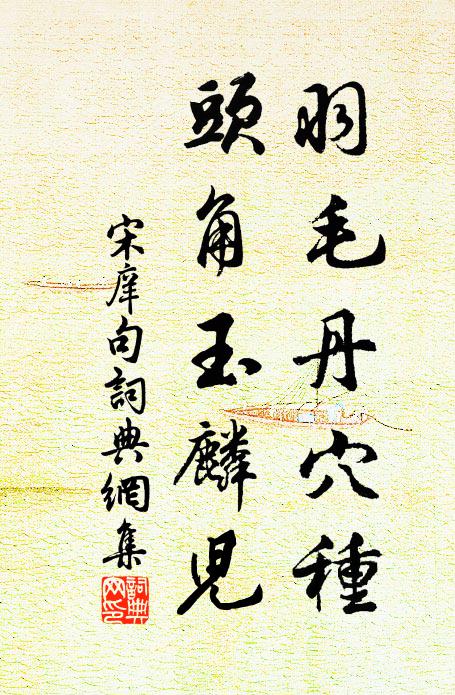 羽毛丹穴種
頭角玉麟兒
宋庠句詞典網集
詞典網印